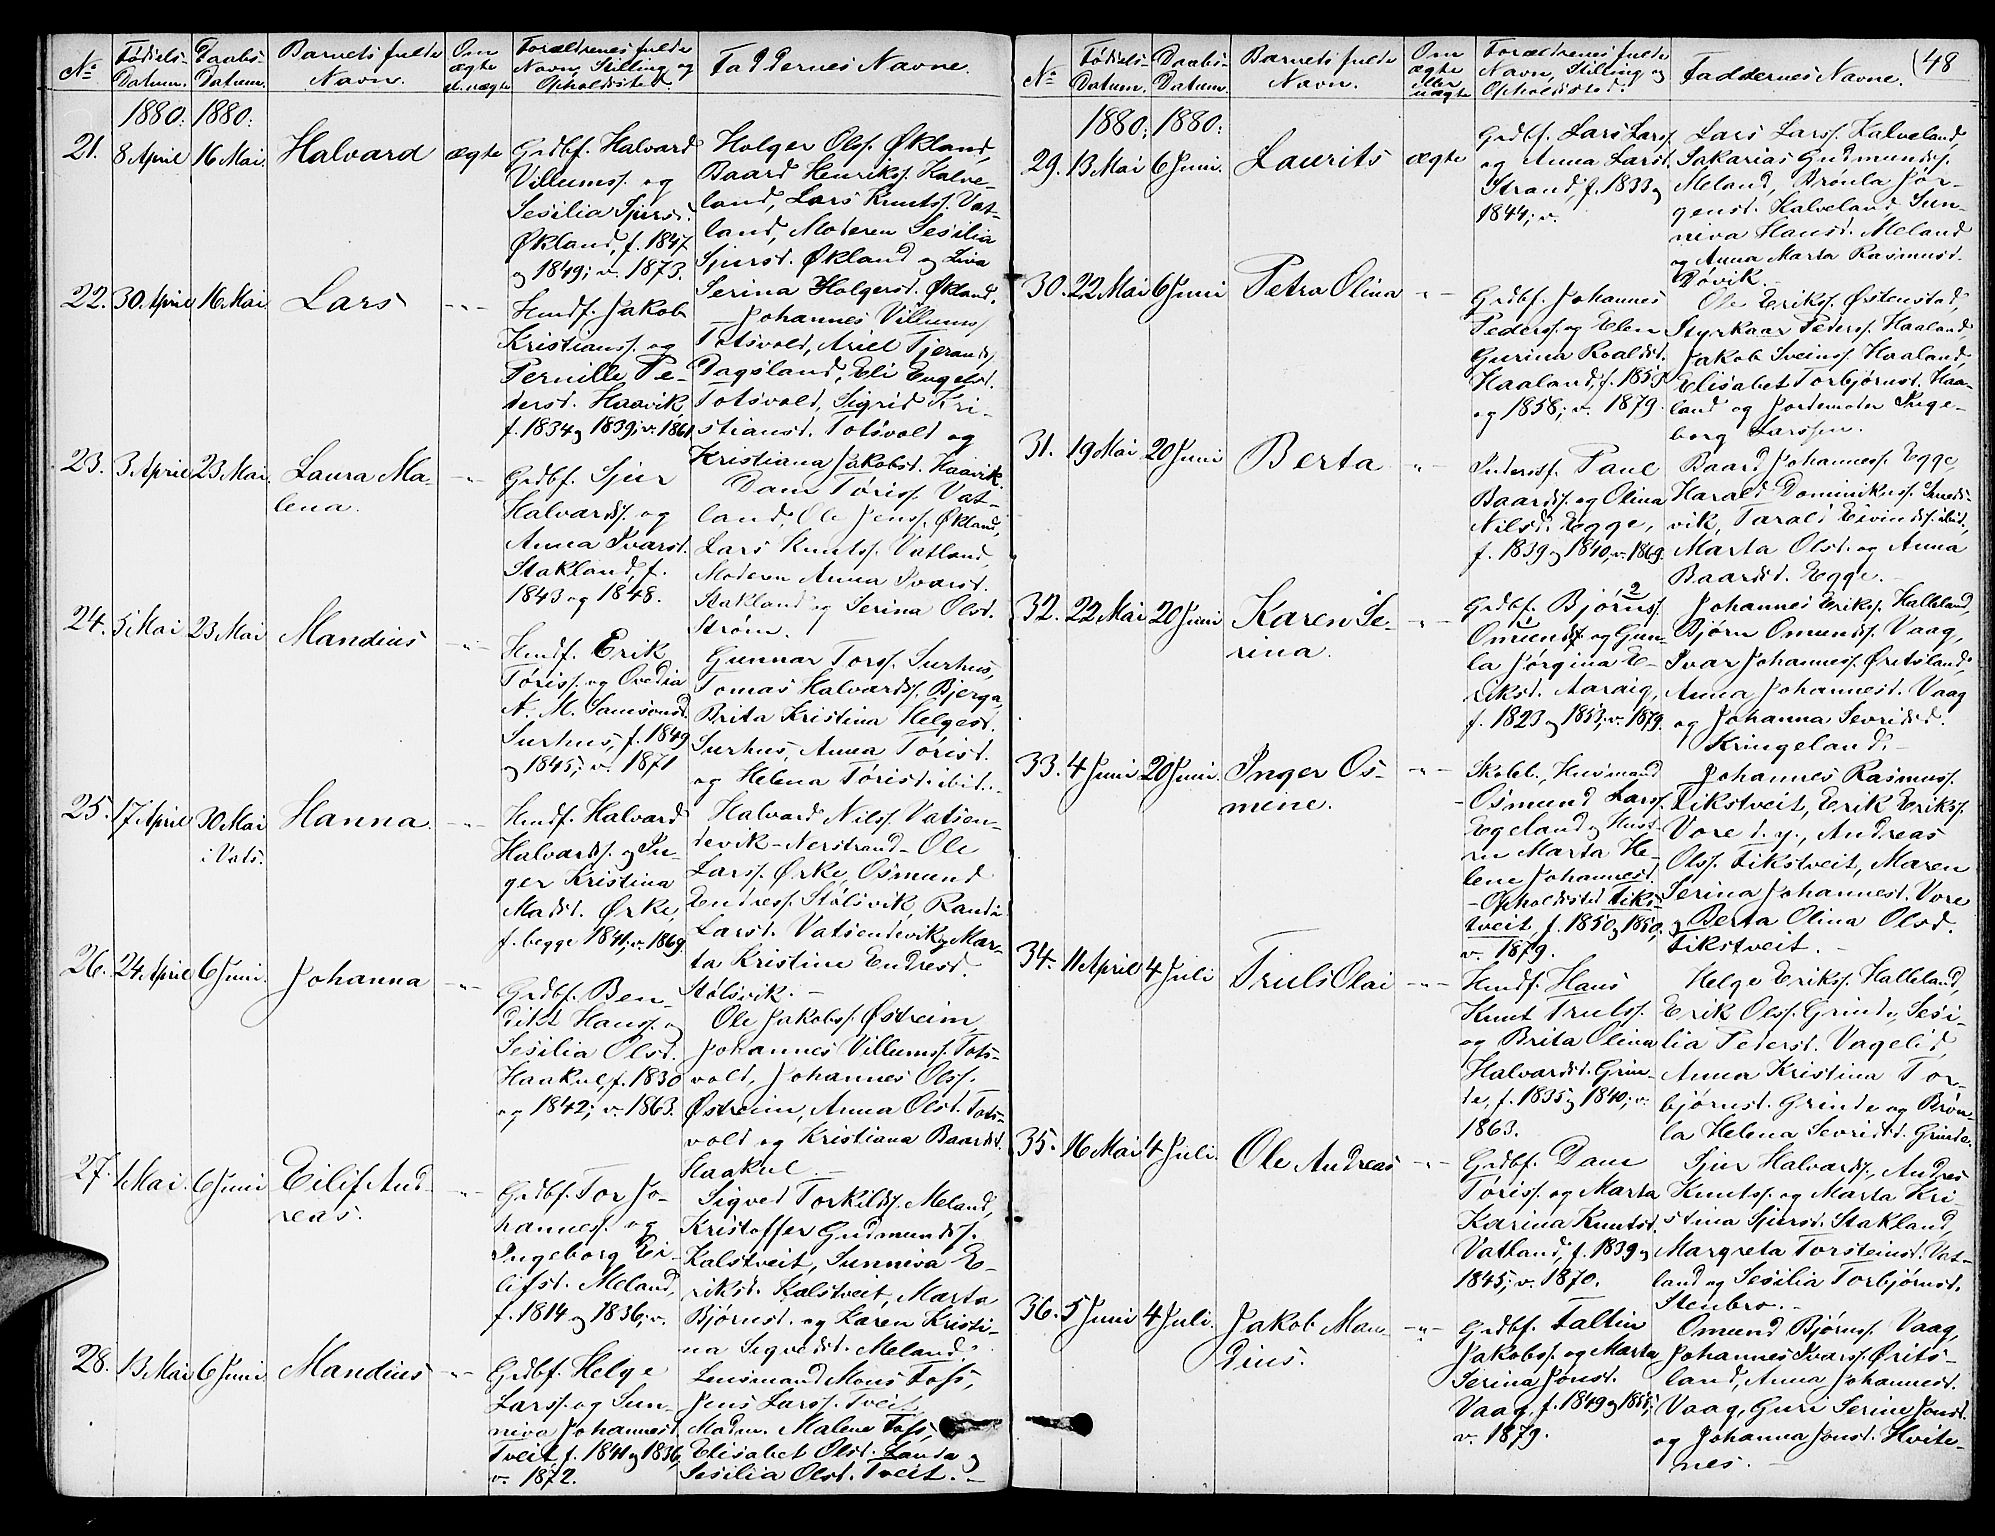 No
Fødsels-
Datum.
Daabs-
Datum.
Barnets fulde
Navn.
Om
ægte
el. uægte
Forældrenes fulde
Navn, Stilling og
Opholdssted.
Faddernes Navne.
1880: 1880:
21. 8 April 16 Mai. Halvard ægte
Grdbf. Halvard
Villumss. og
Sesilia Sjursd.
Økland, f. 1847
og 1849; v. 1873.
Holger Olss. Økland,
Baard Henrikss. Kalve-
land, Lars Knuts. Vat-
land, Moderen Sesilia
Sjursd. Økland og Siva
Serina Holgersd. Økland.
22. 30 April 16 Mai Lars -"-
Hmdf. Jakob
Kristianss. og
Pernille Pe-
dersd. Haavik,
f. 1834 og 1839; v. 1861
Johannes Villums.
Totsvold, Ariel Tjerands.
Dagsland, Eli Engelsd.
Totsvold, Sigrid Kri-
stiansd. Totsvold og
Kristiana Jakobsd. Haavik.
23. 3 April 23 Mai. Laura Ma-
lena. -"-
Grdbf. Sjur
Halvardss. og
Anna Ivarsd.
Stakland, f.
1843 og 1848.
Dam Tøriss. Vat-
land, Ole Jenss. Økland,
Lars Knutss. Vatland,
Moderen Anna Ivarsd.
Stakland og Serina Olsd.
Strøm.
24. 5 Mai 23 Mai Mandius -"-
Hmdf. Erik
Tøriss. og Ovedia
A. M. Samsonsd.
Surhus, f. 1849
og 1845; v. 1871
Gunnar Torss. Surhus,
Tomas Halvardss. Bjerga,
Brita Kristina Helgesd.
Surhus, Anna Tørisd.
og Helena Tørisd. ibid.
25. 17 April 30 Mai
i Vats. Hanna. -"-
Hmdf. Halvard
Halvardss. og In-
ger Kristina
Madsd. Ørke,
f. begge 1841; v. 1869
Halvard Nilss. Vatsen-
devik - Nerstrand - Ole
Larss. Ørke, Osmund
Endress. Stølsvik, Randi
Larsd. Vatsendevik og Mar-
ta Kristine Endresd.
Stølsvik. -
26. 24 April 6 Juni. Johanna -"-
Grdbf. Ben-
dikt Hanss. og
Sesilia Olsd.
Haakul, f. 1830
og 1842; v. 1863.
Ole Jakobss. Østreim,
Johannes Villumss. Tots-
vold, Johannes Olss.
Østreim, Anna Olsd. Tots-
vold og Kristiana Baardsd.
Haakul. -
27. 1 Mai. 6 Juni Eilif And-
reas. -"-
Grdbf. Tor Jo-
hanness. og
Ingeborg Ei-
lifsd. Meland,
f. 1814 og 1836; v.
Sigved Torkildss. Meland,
Kristoffer Gudmundss.
Kalstveit, Sunneva E-
riksd. Kalstveit, Marta
Bjørnsd. og Karen Kristi-
na Sigvedsd. Meland.
28. 13 Mai 6 Juni. Mandius -"-
Grdbf. Helge
Larss. og Sun-
niva Johannesd.
Tveit f. 1841 og 1836,
v. 1872.
Lensmand Mons Foss,
Jens Larss. Tveit,
Madm. Malene Foss,
Elisabet Olsd. Landa og
Sesilia Olsd. Tveit. -
No
Fødsels-
Datum.
Daabs-
Datum.
Barnets fulde
Navn.
Om
ægte
eller
uægte
Forældrenes fulde
Navn, Stilling og
Opholdssted.
Faddernes Navne.
(48
1880: 1880:
29. 13 Mai 6 Juni. Laurits ægte
Grdbf. Lars Larss.
og Anna Larsd.
Strand, f. 1833 og
1844; v.
Lars Larss. Kalveland,
Sakarias Gudmundss.
Meland, Brønla Jør-
gensd. Kalveland, Sun-
niva Hansd. Meland
og Anna Marta Rasmusd.
Døvik. -
30. 22 Mai 6 Juni Petra Olina -"-
Grdbf. Johannes
Pederss. og Elen
Gurina Roaldsd.
Haaland, f. 1859
og 1858; v. 1879.
Ole Erikss. Østenstad,
Styrkaar Pederss. Haaland,
Jakob Sveinss. Haaland,
Elisabet Torbjørnsd. Haa-
land og Jordemoder Inge-
borg Larssen.
31. 19 Mai 20 Juni Berta -"-
Inderss. Paul
Baardss. og Olina
Nilsd. Egge,
f. 1839 og 1840, v. 1869.
Baard Johanness. Egge,
Harald Dominikuss. Smeds-
vik, Tarald Eivindss. ibid,
Marta Olsd. og Anna
Baardsd. Egge. -
32. 22 Mai 20 Juni Karen Se-
rina. -"-
Grdbf. Bjørns.
Omund og Gun-
la Jørgina E-
riksd. Aaraig,
f. 1823 og 1853; v. 1879.
Johannes Erikss. Halleland,
Bjørn Omundss. Vaag,
Ivar Johanness. Øritsland,
Anna Johannesd. Vaag
og Johanna Sevridsd.
Kringeland. -
33. 4 Juni 20 Juni. Inger Os-
mine. -"-
Skobl., Husmand
Osmund Larss.
Egeland og Hust-
ru Marta He-
lene Johannesd.
- Opholdssted Tiks-
tveit, f. 1850 og 1850;
v. 1879.
Johannes Rasmuss.
Tikstveit, Erik Erikss.
Vore d. y., Andreas
Olss. Tikstveit, Maren
Serina Johannesd. Vore
og Berta Olina Olsd.
Tikstveit. -
34. 11 April 4 Juli Truls Olai -"-
Hmdf. Hans
Knut Trulss.
og Brita Olina
Halvardsd. Grin-
de, f. 1835 og 1840; v.
1863.
Helge Erikss. Halleland,
Erik Olss. Grinde, Sesi-
lia Pedersd. Vagelid,
Anna Kristina Tor-
bjørnsd. Grinde og Brøn-
la Helena Sevridsd. Grinde.
35. 16 Mai 4 Juli. Ole Andreas -"-
Grdbf. Dam
Tøriss. og Marta
Karina Knutsd.
Vatland, f. 1839 og
1845; v. 1870.
Sjur Halvardss., Andres
Knutss. og Marta Kri-
stina Sjursd. Stakland,
Margreta Torsteinsd. Vat-
land og Sesilia Torbjørnsd.
Stenbro. -
36. 5 Juni 4 Juli. Jakob Man-
dius. -"-
Grdbf. Faltin
Jakobss. og Marta
Serina Jonsd.
Vaag, f. 1849 og 1855;
v. 1879.
Omund Bjørnss. Vaag,
Johannes Ivarss. Ørits-
land, Anna Johannesd.
Vaag, Guri Serine Jonsd.
og Johanna Jonsd. Hvite-
nes. -